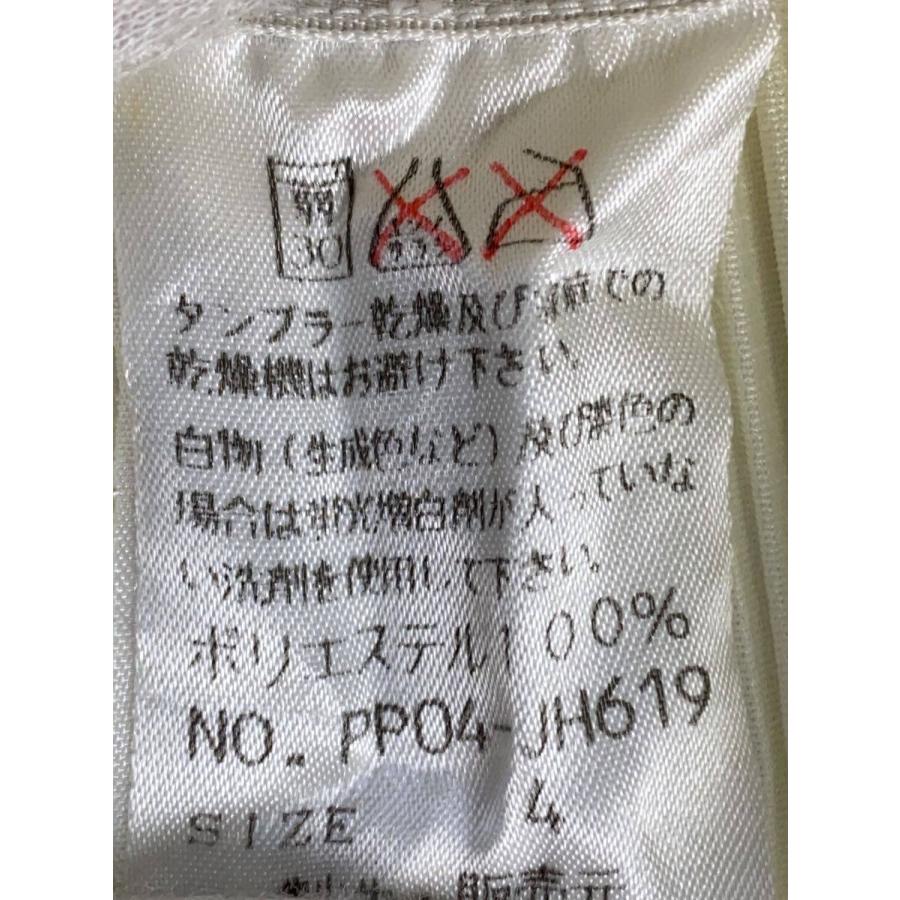 弱
30
エンソサラシ
タンブラー乾燥及び家庭での
乾燥機はお避け下さい。
白物(生成色など)及び淡色の
場合は蛍光増白剤が入っていな
い洗剤を使用して下さい。
ポリエステル100%
NO. PP04-JH619
SIZE 4
販売元